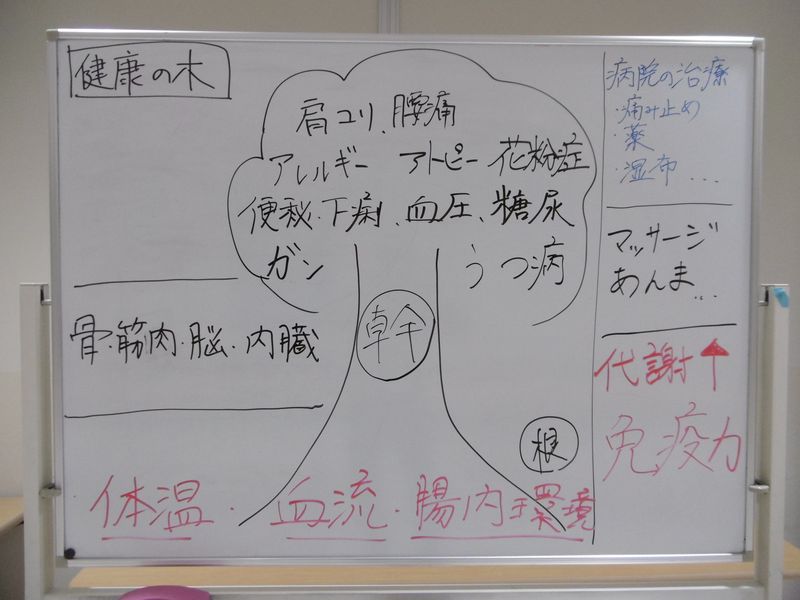 健康の木
肩コリ、腰痛
アレルギー アトピー 花粉症
便秘・下痢、血圧、糖尿
ガン うつ病
幹
骨・筋肉・脳・内臓
根
体温・血流・腸内環境
病院の治療
・痛み止め
・薬
・湿布...
マッサージ
あんま...
代謝↑
免疫力